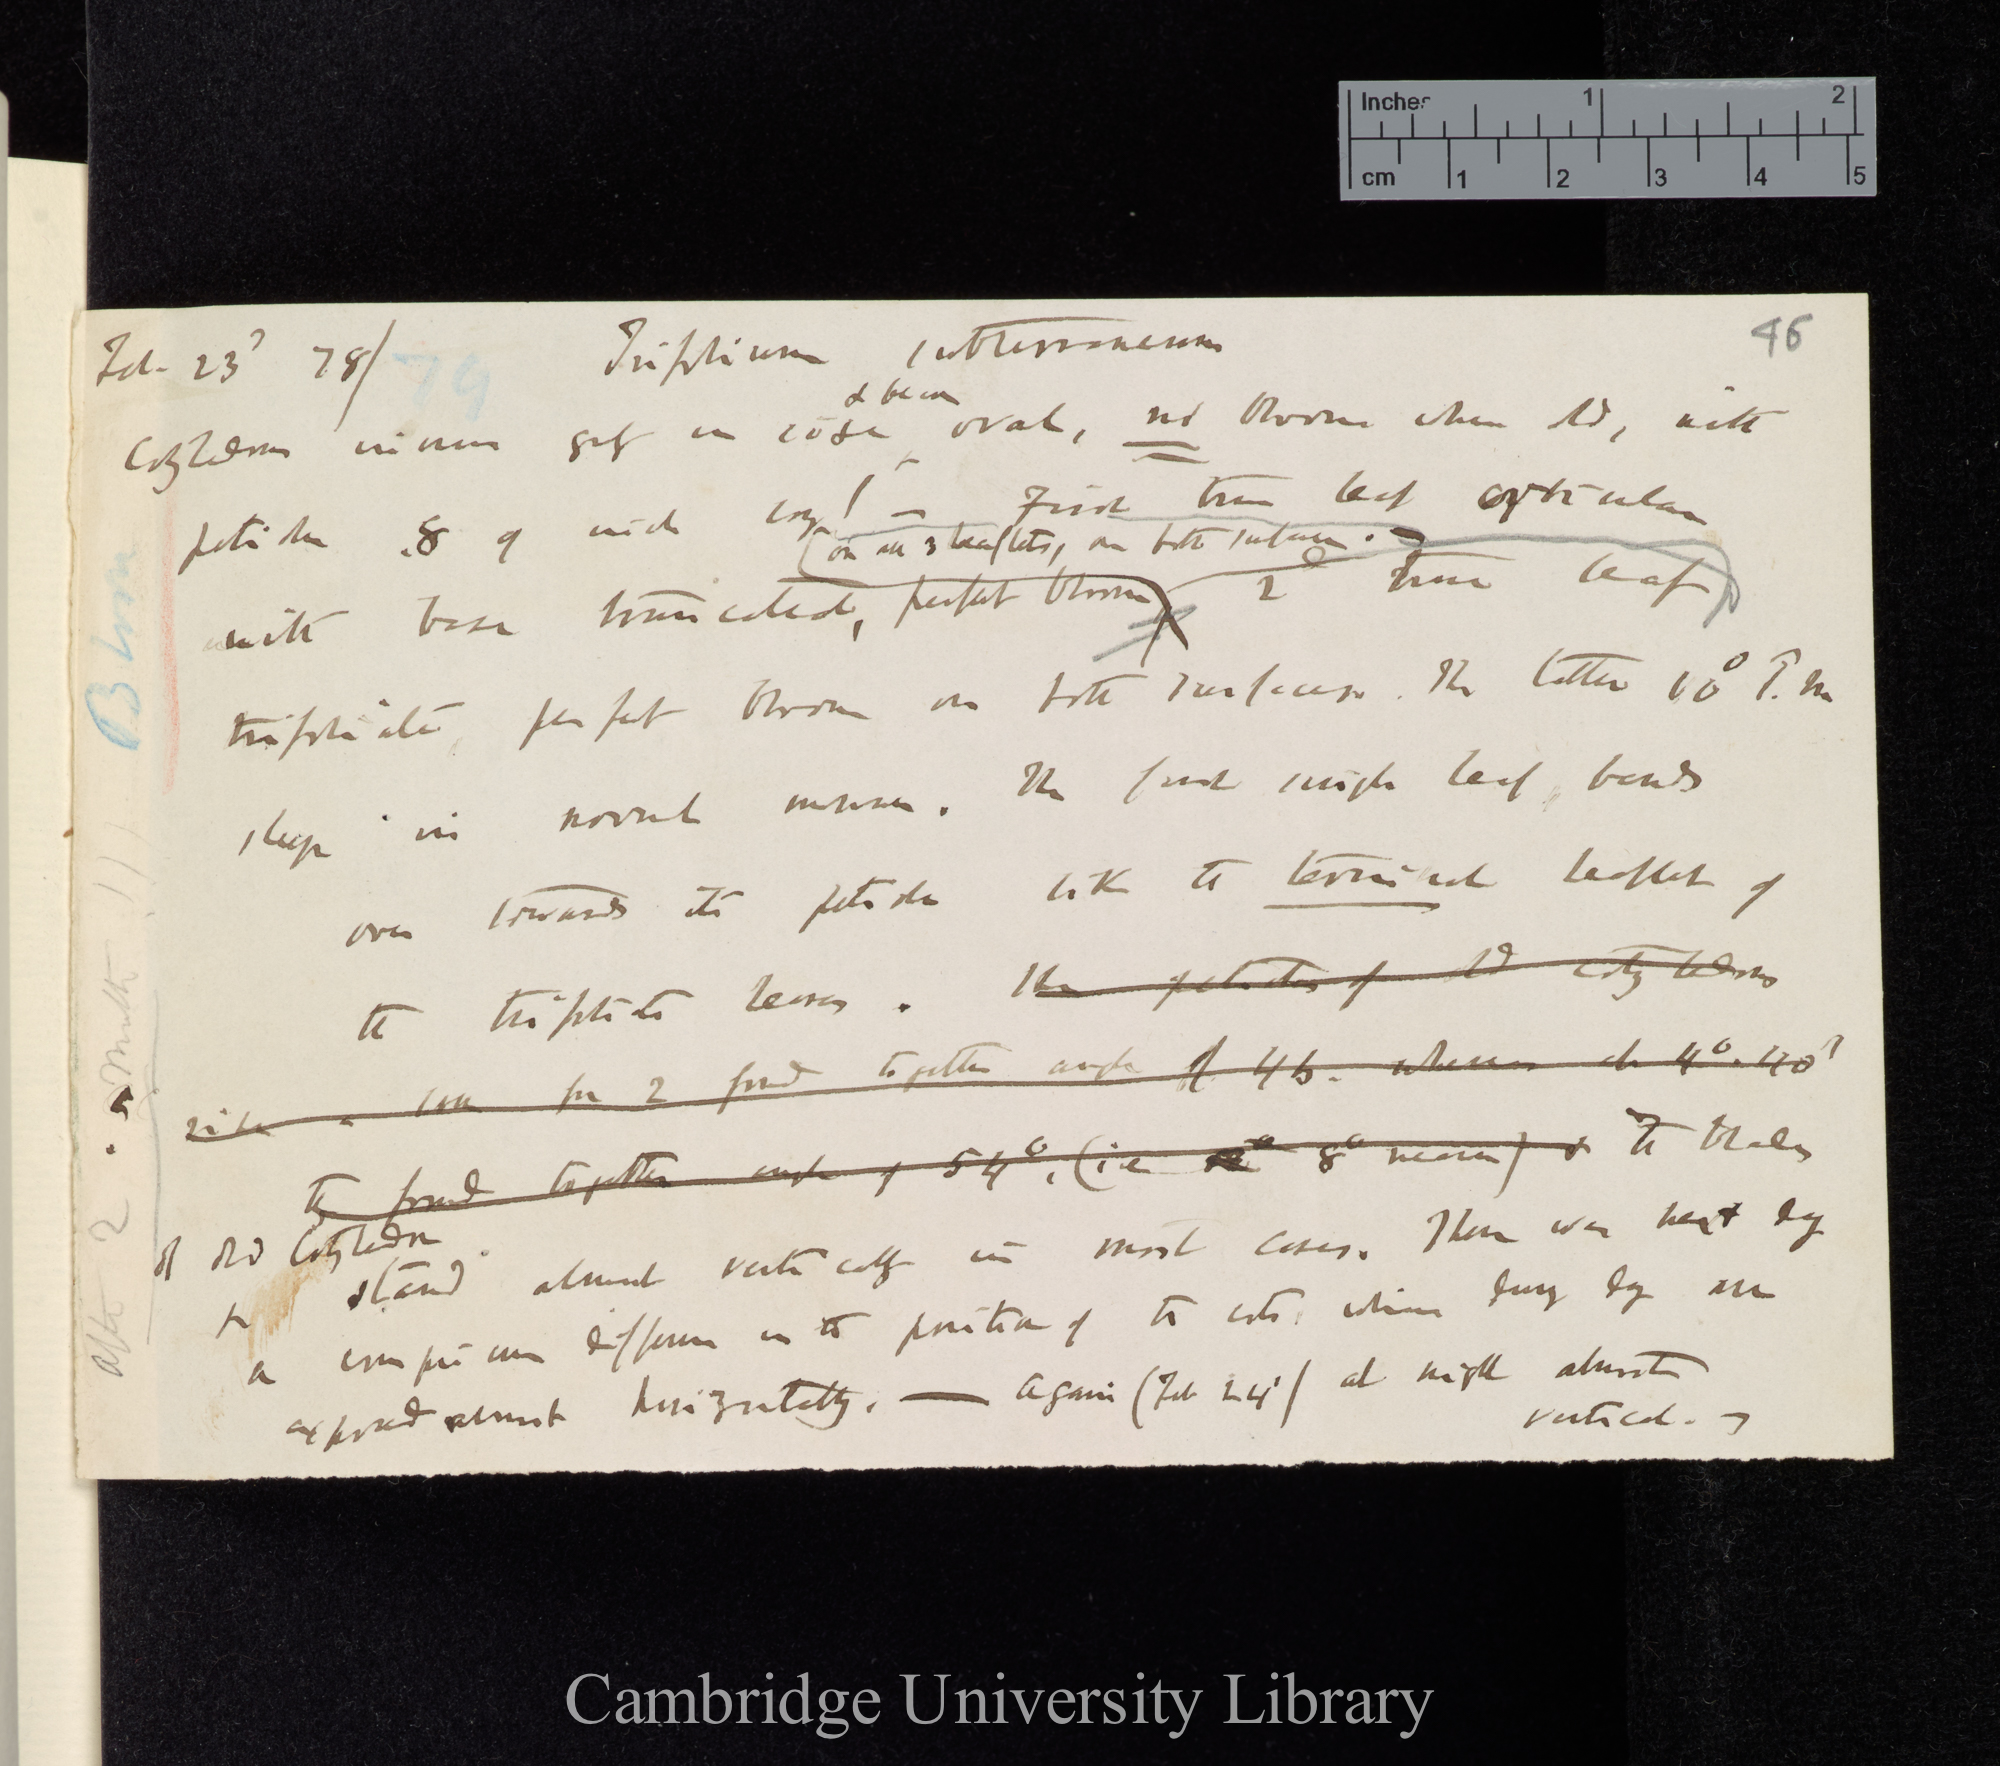 46
Feb. 23d 78/ Trifolium subterraneum
79
& become
Cotyledons in case oval, no bloom when old, with
petioles .8 of inch long! — First true leaf orbicular
(on all 3 leaflets, on both surfaces.
with base truncated, perfect bloom) 2d true leaf
trifoliate perfect bloom on both surfaces. The latter 10° P.m
sleep in normal manner. The first single leaf, bends
over towards its petiole like the terminal leaflet of
the trifoliate leaves. The petioles of old cotyledons
rise a for 2 formed together angle of 46. whereas at 4°. 40'
they formed together angle of 54°, (i.e 8° nearer) & The blades
of old Cotyledon
stand almost vertically in most cases. There was next day
a conspicuous difference in the position of the cots. which during day are
exposed almost horizontally. — Again (Feb 24) at night almost
vertical.
Bloom
after 2. 5 Month
Inches 1 2
cm 1 2 3 4 5
Cambridge University Library